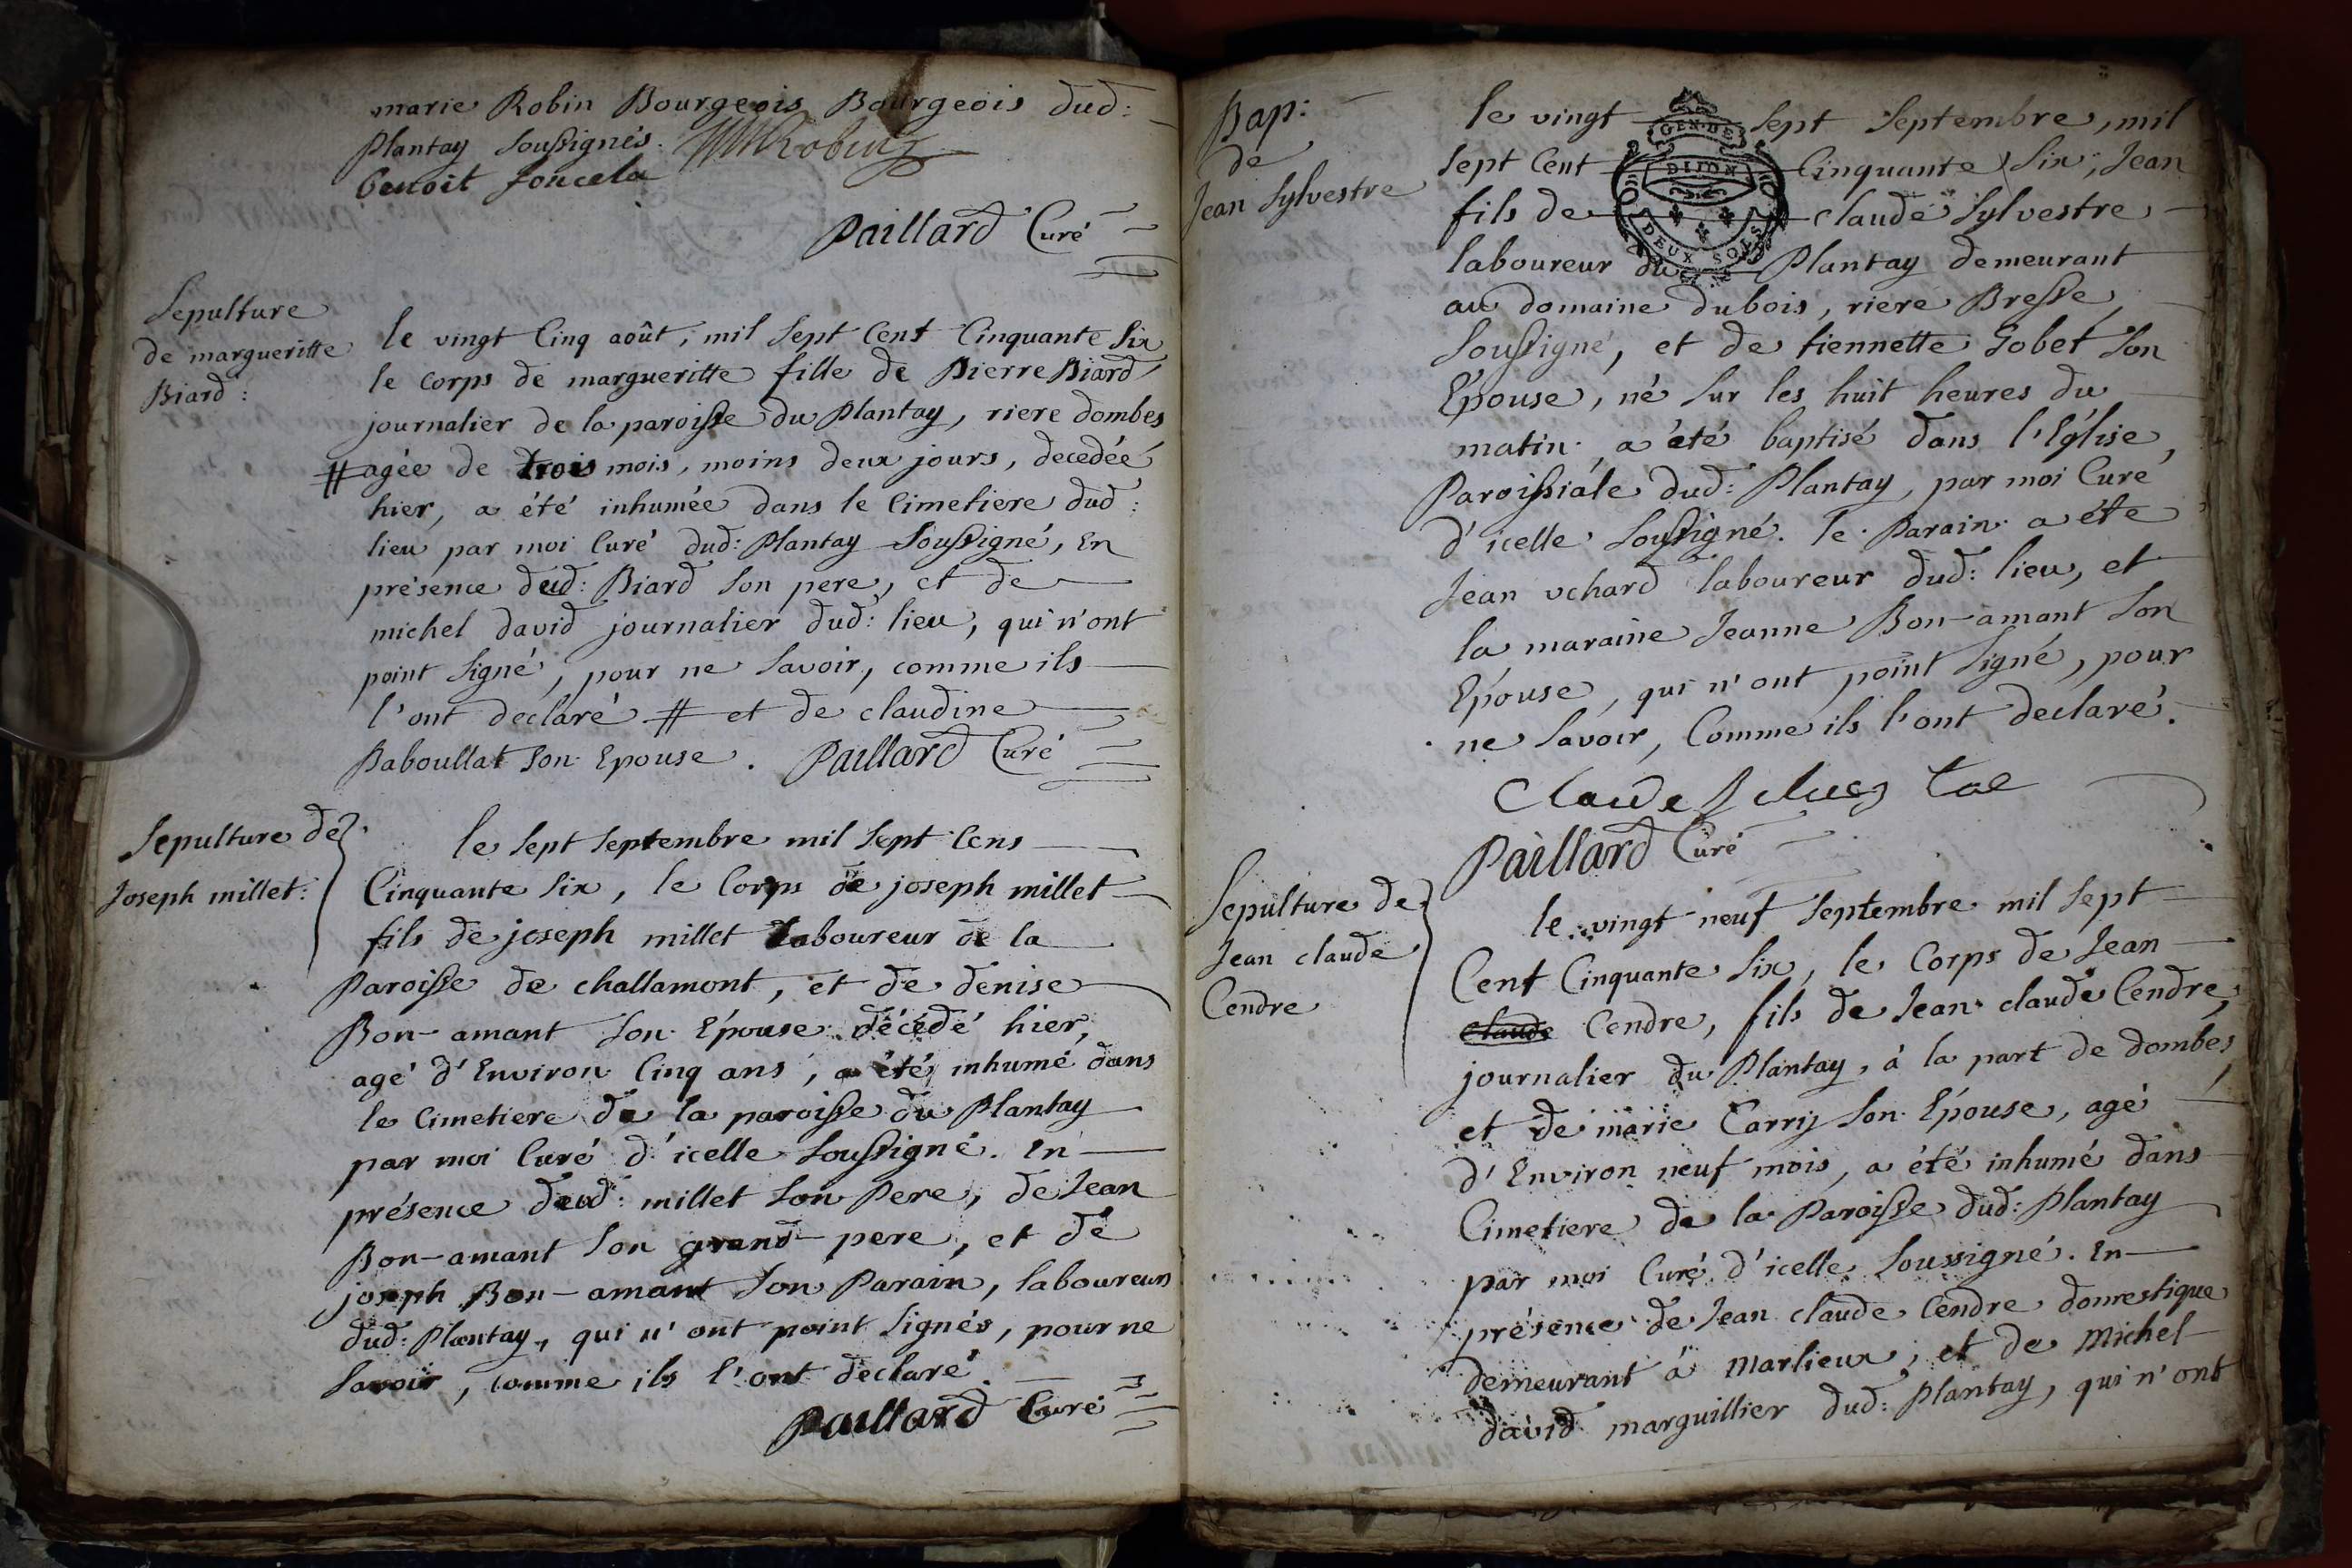 marie Robin Bourgeois Bourgeois dud:
Plantay soussignés. Robin
benoit Joncela
Paillard Curé
Sepulture
de margueritte
Biard:
le vingt Cinq août, mil sept Cent Cinquante six
le corps de margueritte fille de Pierre Biard
journalier de la paroisse du Plantay, riere dombes
# agée de trois mois, moins deux jours, decedée
hier, a été inhumée dans le Cimetiere dud:
lieu par moi Curé dud: Plantay Soussigné, En
présence dud: Biard son pere, et de
michel david journalier dud: lieu, qui n'ont
point signé, pour ne savoir, comme ils
l'ont declaré # et de claudine
Paboullat son Epouse. Paillard Curé
Sepulture de
Joseph millet:
le sept septembre mil sept Cens
Cinquante six, le Corps de joseph millet
fils de joseph millet Laboureur de la
Paroisse de challamont, et de denise
Bon-amant son Epouse décédé hier,
agé d'Environ Cinq ans, a été inhumé dans
le Cimetiere de la paroisse du Plantay
par moi Curé d'icelle soussigné. En
présence dud: millet son Pere, de Jean
Bon-amant son grand-pere, et de
joseph Bon-amant son Parain, laboureurs
dud: Plantay, qui n'ont point signés, pour ne
savoir, comme ils l'ont declaré.
Paillard Curé
Bap:
de
Jean Sylvestre
GEN. DE
DIJON
DEUX SOLS
le vingt sept septembre, mil
sept Cent Cinquante six, Jean
fils de claude Sylvestre
laboureur du Plantay demeurant
au domaine dubois, riere Bresse,
Soussigné, et de tiennette Gobet son
Epouse, né sur les huit heures du
matin, a été baptisé dans l'Eglise,
Paroissiale dud: Plantay, par moi Curé
d'icelle soussigné. le Parain a éte
Jean uchard laboureur dud: lieu, et
la maraine Jeanne Bon-amant son
Epouse, qui n'ont point signé, pour
ne savoir, Comme ils l'ont declaré.
Claude
Paillard Curé
Sepulture de
Jean claude
Cendre
le vingt neuf septembre mil sept
Cent Cinquante six, le Corps de Jean
claude Cendre, fils de Jean claude Cendre,
journalier du Plantay, à la part de dombes,
et de marie Carrij son Epouse, agé
d'Environ neuf mois, a été inhumé dans
Cimetiere de la Paroisse dud: Plantay
par moi Curé d'icelle Soussigné. En
présence de Jean claude Cendre domestique
demeurant à Marlieux, et de Michel
david marguillier dud: Plantay, qui n'ont